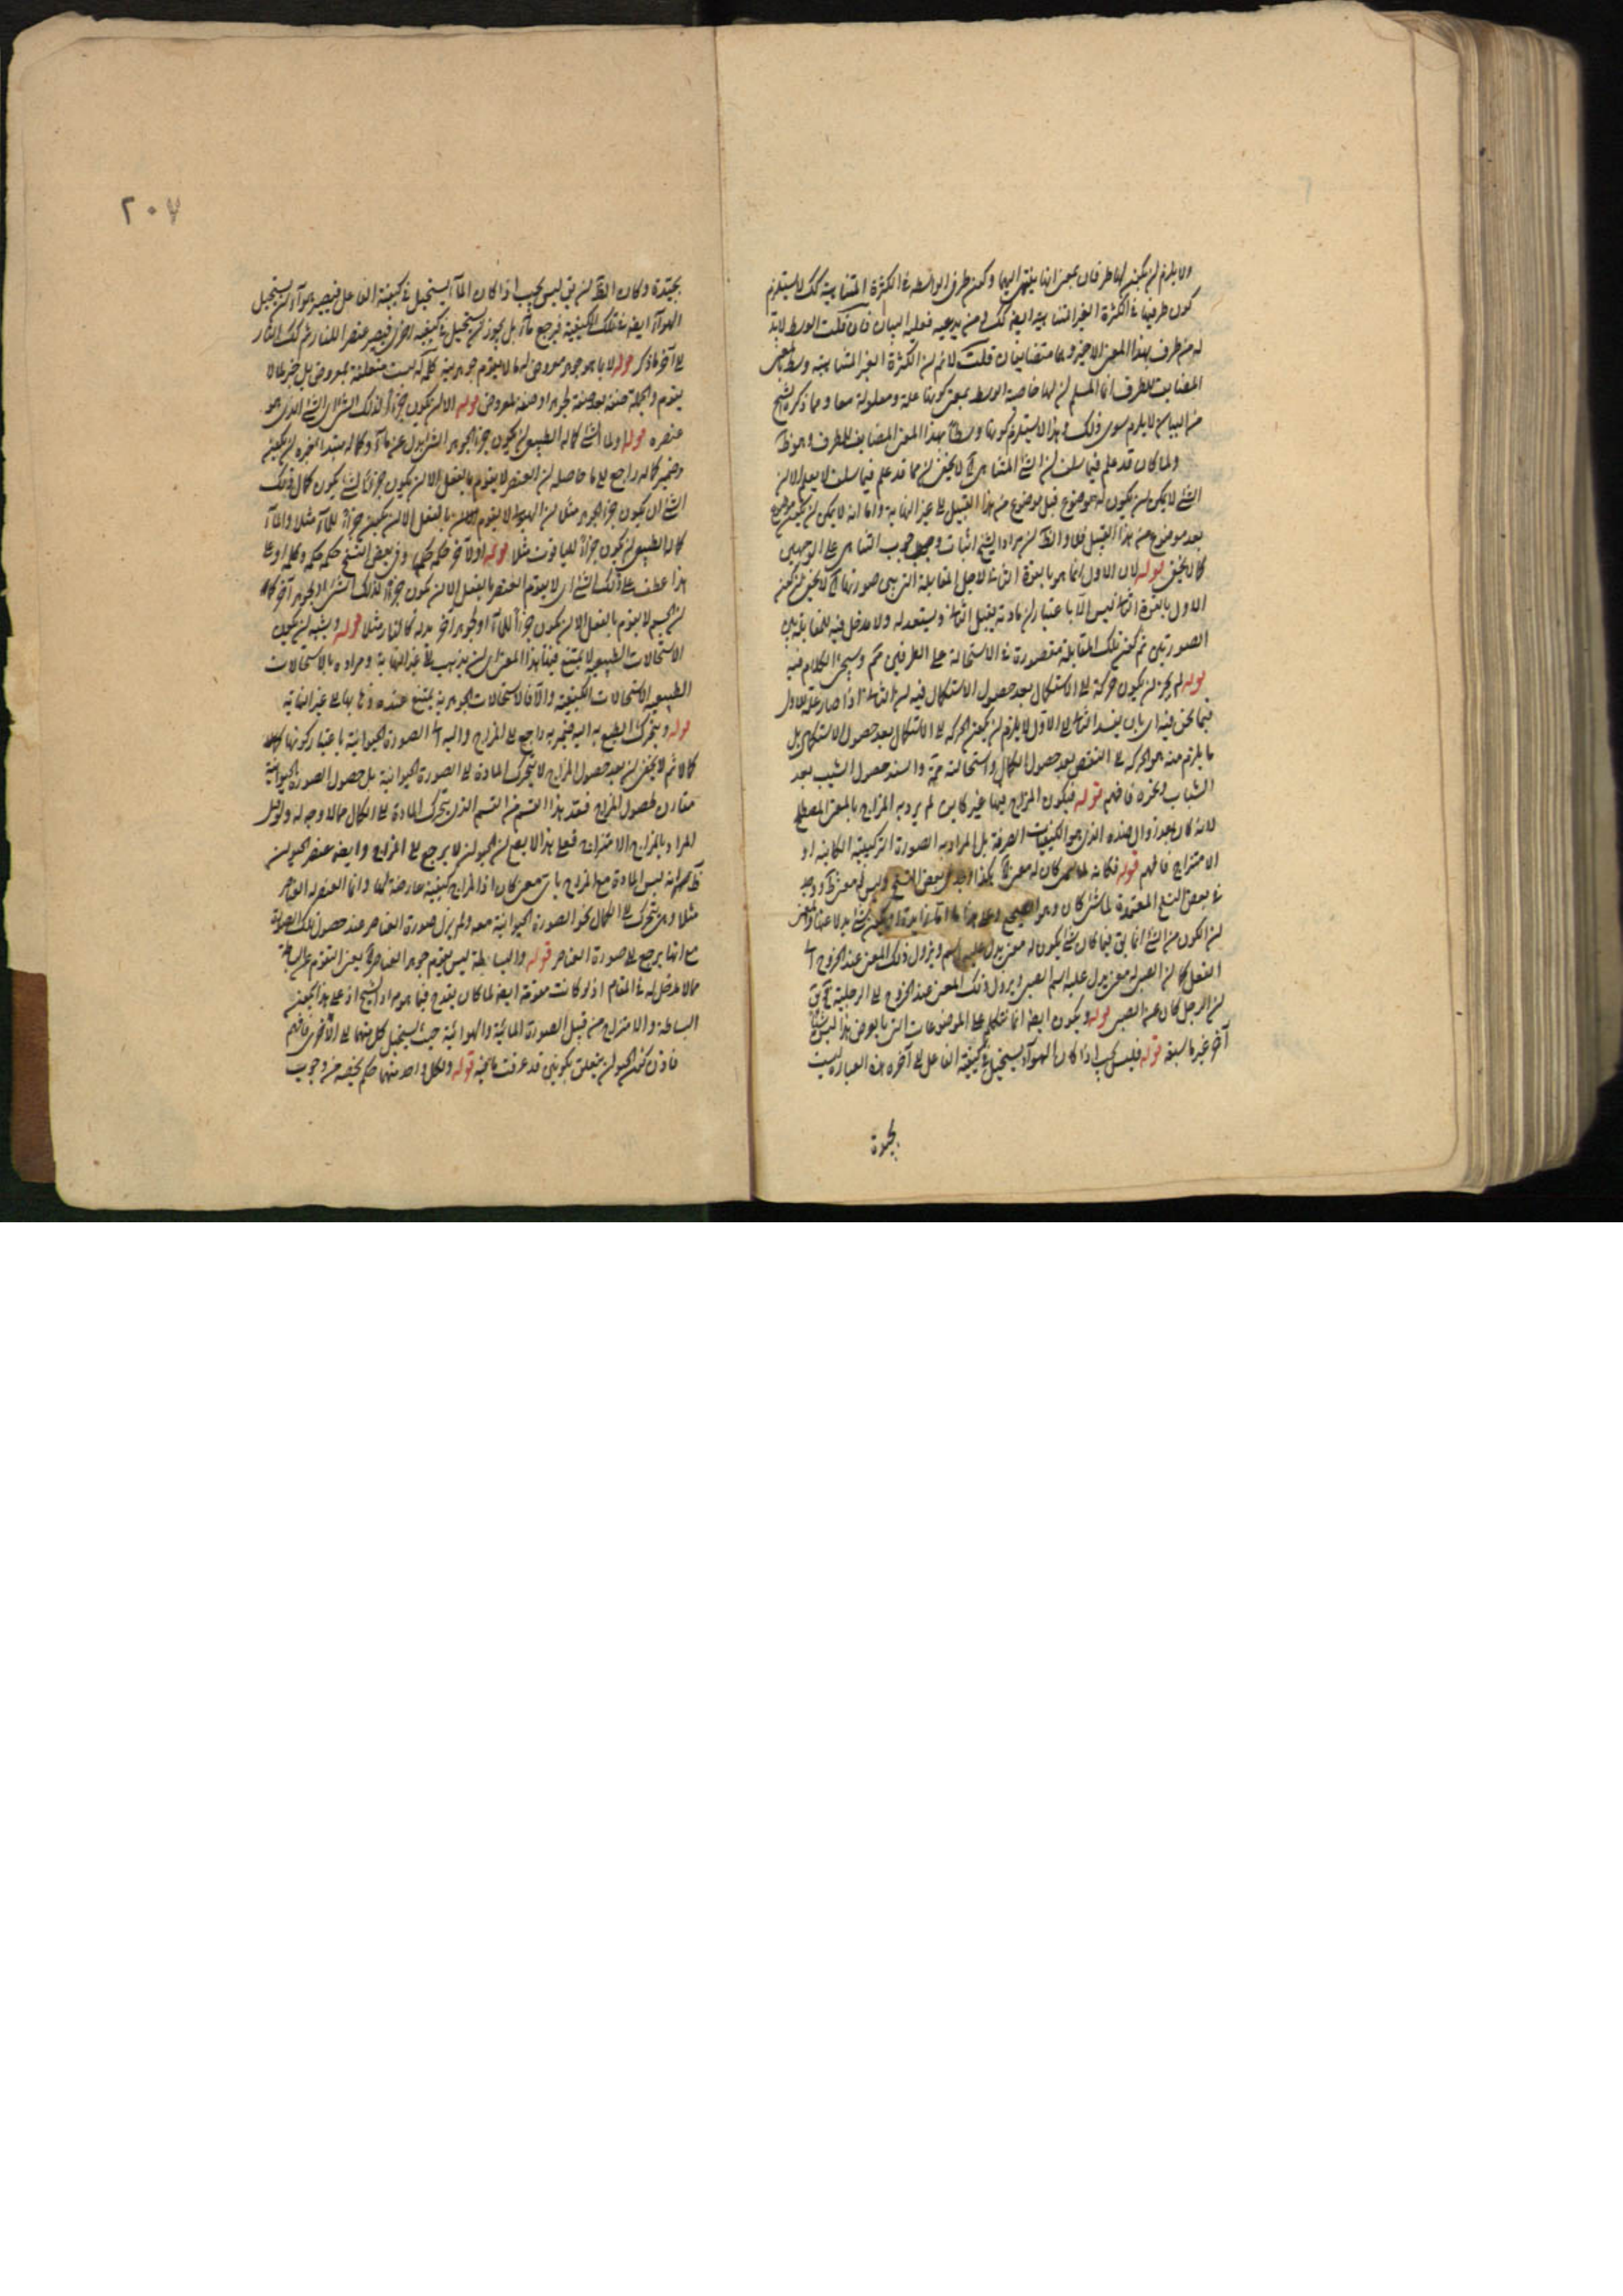 ولا يلزم ان يكون لها طرفان بمعنى انها ينتهى اليهما وكون طرفى الواسطة فى الكثرة المتناهية كك لا يستلزم
كون طرفيها فى الكثرة الغير المتناهية ايضا كك ومن يدعيه فعليه البيان فان قلت الوسط لابد
له من طرف بهذا المعنى الاخير وهما متضايفان قلت لانم ان الكثرة الغير المتناهية وسط بالمعنى
المضايف للطرف انما المسلم ان لها خاصة الوسط بمعنى كونها علة ومعلولة معا ومما ذكره الشيخ
من البيان لا يلزم سوى ذلك وهذا لا يستلزم كونها وسطا بهذا المعنى المضايف للطرف وهو ظ
ولما كان قد علم فيما سلف ان الشئ المتناهى لا يخفى ان مما قد علم فيما سلف لا يعلم الا ان
الشئ لا يمكن ان يكون له موضوع قبل موضوع من هذا القبيل الى غير النهاية واما انه لا يمكن ان يكون موضوع
بعد موضوع من هذا القبيل فلا والظ ان مراد الشيخ اثبات وجوب التناهى على الوجهين
كما لا يخفى قوله لان الاول انما هو بالقوة الثانى لاجل المقابلة التى بين صورتهما لا يخفى ان كون
الاول بالقوة الثانى ليس الا باعتبار ان مادته يقبل الثانى ويستعد له ولا مدخل فيه للمقابلة بين
الصورتين ثم كون تلك المقابلة مقصورة فى الاستحالة على الطرفين مم وسيجئ الكلام فيه
قوله لم يجز ان يكون حركة الى الاستكمال بعد حصول الاستكمال فيه ان الثانى اذا صار علة للاول
فيما نحن فيه اى بان يفسد الثانى الى الاول لا يلزم ان يكون الحركة الى الاستكمال بعد حصول الاستكمال بل
ما يلزم منه هو الحركة الى النقص بعد حصول الكمال واستحالته مم والسند حصول الشيب بعد
الشباب ونحوه فافهم قوله فيكون المزاج فيها غير كاين لم يرد به المزاج بالمعنى المصطلح
لانه كان بعد زوال ضده الذى هو الكيفيات الصرفة بل المراد به الصورة التركيبية الكاينة او
الامتزاج فافهم قوله فكانه لما كان له معنى هكذا وجد فى بعض النسخ وليس له معنى ووجد
فى بعض النسخ المعتمدة لما شئ كان وهو الصحيح وعلى هذا ما اما زايدة او يكون شئ بدلا عنها والمعنى
ان الكون من الشئ انما يق فيما كان شئ يكون له معنى يدل عليه اسم ويزول ذلك المعنى عند الخروج الى
الفعل كما ان الصبى له معنى يدل عليه اسم الصبى ويزول ذلك المعنى عند الخروج الى الرجلية فيق
ان الرجل كان عن الصبى قوله ويكون ايضا انما نتكلم على الموضوعات التى بالعرض هذا ليس شيئا
آخر غير ما سبق قوله فليس يجب اذا كان الهواء يستحيل فى كيفية الفاعل الى آخره هذه العبارة ليست
بجيدة
٢٠٧
بجيدة وكان الظ ان يق ليس يجب اذا كان الماء يستحيل فى كيفية الفاعل فيصير هواء ان يستحيل
الهواء ايضا فى تلك الكيفية فيرجع ماء بل يجوز ان يستحيل فى كيفية اخرى فيصير عنصرا للنار ثم كك النار
الى آخر ما ذكر قوله لا بما هو جوهر معروض لها لا يقوم جوهريته كلمة لها ليست متعلقة بمعروض بل خبر لما لا
يقوم والجملة صفة بعد صفة لجوهر او صفة لمعروض قوله الا ان يكون جزءا لذلك الشئ اى الشئ الذى هو
عنصره قوله ولما الشئ كماله الطبيعى ان يكون جزءا لجوهر الشئ بدل عن ما وكماله مبتدأ خبره ان يكون
وضمير كماله راجع الى ما حاصله ان العنصر لا يقوم بالفعل الا ان يكون جزءا لشئ يكون كمال ذلك
الشئ ان يكون جزءا لجوهر مثلا ان الهيولى لا يقوم بالفعل الا ان يكون جزءا للماء مثلا والماء
كماله الطبيعى ان يكون جزءا للياقوت مثلا قوله او لآخر حكمه حكمه وفى بعض النسخ حكمه حكمه وكماله او على
هذا عطف على ذلك الشئ اى لا يقوم العنصر بالفعل الا ان يكون جزءا لذلك الشئ او لجوهر آخر كما
ان الجسم لا يقوم بالفعل الا ان يكون جزءا للماء او لجوهر آخر بدله كالنار مثلا قوله ويشبه ان يكون
الاستحالات الطبيعية لا يمتنع فيها هذا المعنى اى ان يذهب الى غير النهاية ومراده بالاستحالات
الطبيعية الاستحالات الكيفية والا فالاستحالات الجوهرية يمتنع عنده ذهابها الى غير النهاية
قوله ويتحرك بالطبع به اليه ضمير به راجع الى المزاج واليه الى الصورة الحيوانية باعتبار كونها كمالا
كمالا ثم لا يخفى ان بعد حصول المزاج لا يتحرك المادة الى الصورة الحيوانية بل حصول الصورة الحيوانية
مقارن لحصول المزاج فعد هذا القسم من القسم الذى يتحرك المادة الى الكمال مما لا وجه له ولو قيل
المراد بالمزاج الامتزاج فعلى هذا لا يصح ان الحيوان لا يرجع الى المزاج وايضا عنصر الحيوان
ظاهر انه ليس المادة مع المزاج باى معنى كان اذ المزاج كيفية عارضة لها وانما العنصر له العناصر
مثلا وهى يتحرك الى الكمال نحو الصورة الحيوانية معه ولم يزل صورة العناصر عند حصول تلك الصورة
مع انها يرجع الى صورة العناصر قوله والبساطة ليس يقوم جوهر العناصر يعنى التقوم على البساطة
مما لا مدخل له فى المقام اذ لو كانت مقومة ايضا لما كان يقدح فيما هو مراد الشيخ اذ على هذا يكون
البساطة والامتزاج من قبيل الصورة المائية والهوائية حيث يستحيل كل منهما الى الاخرى فافهم
فاذن تكون الحيوان يتعلق بكونين قد عرفت ما فيه قوله ولكل واحد منهما حكم يخصه من وجوب